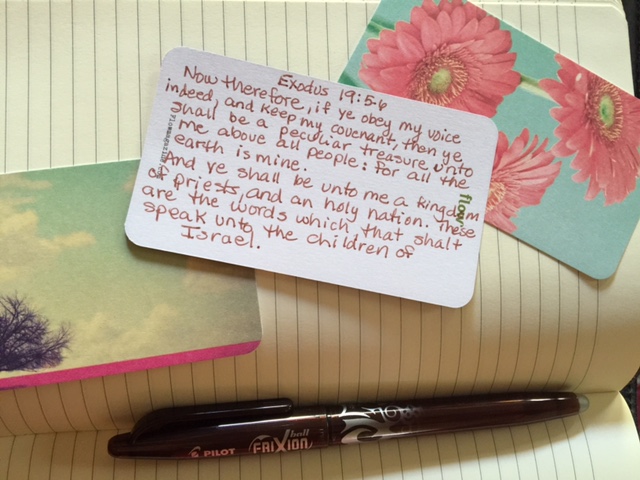 Exodus 19:5-6
Now therefore, if ye obey my voice
indeed, and keep my covenant, then ye
shall be a peculiar treasure unto
me above all people: for all the
earth is mine.
And ye shall be unto me a kingdom
of priests, and an holy nation. These
are the words which that shalt
speak unto the children of
Israel.
flow
PILOT
FRIXion ball